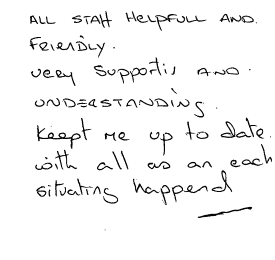 ALL STAff HelpFULL AND.
FRIENDLY.
very Supportis AND.
UNDERSTANDING.
Keept me up to date.
with all as an each
situating happend